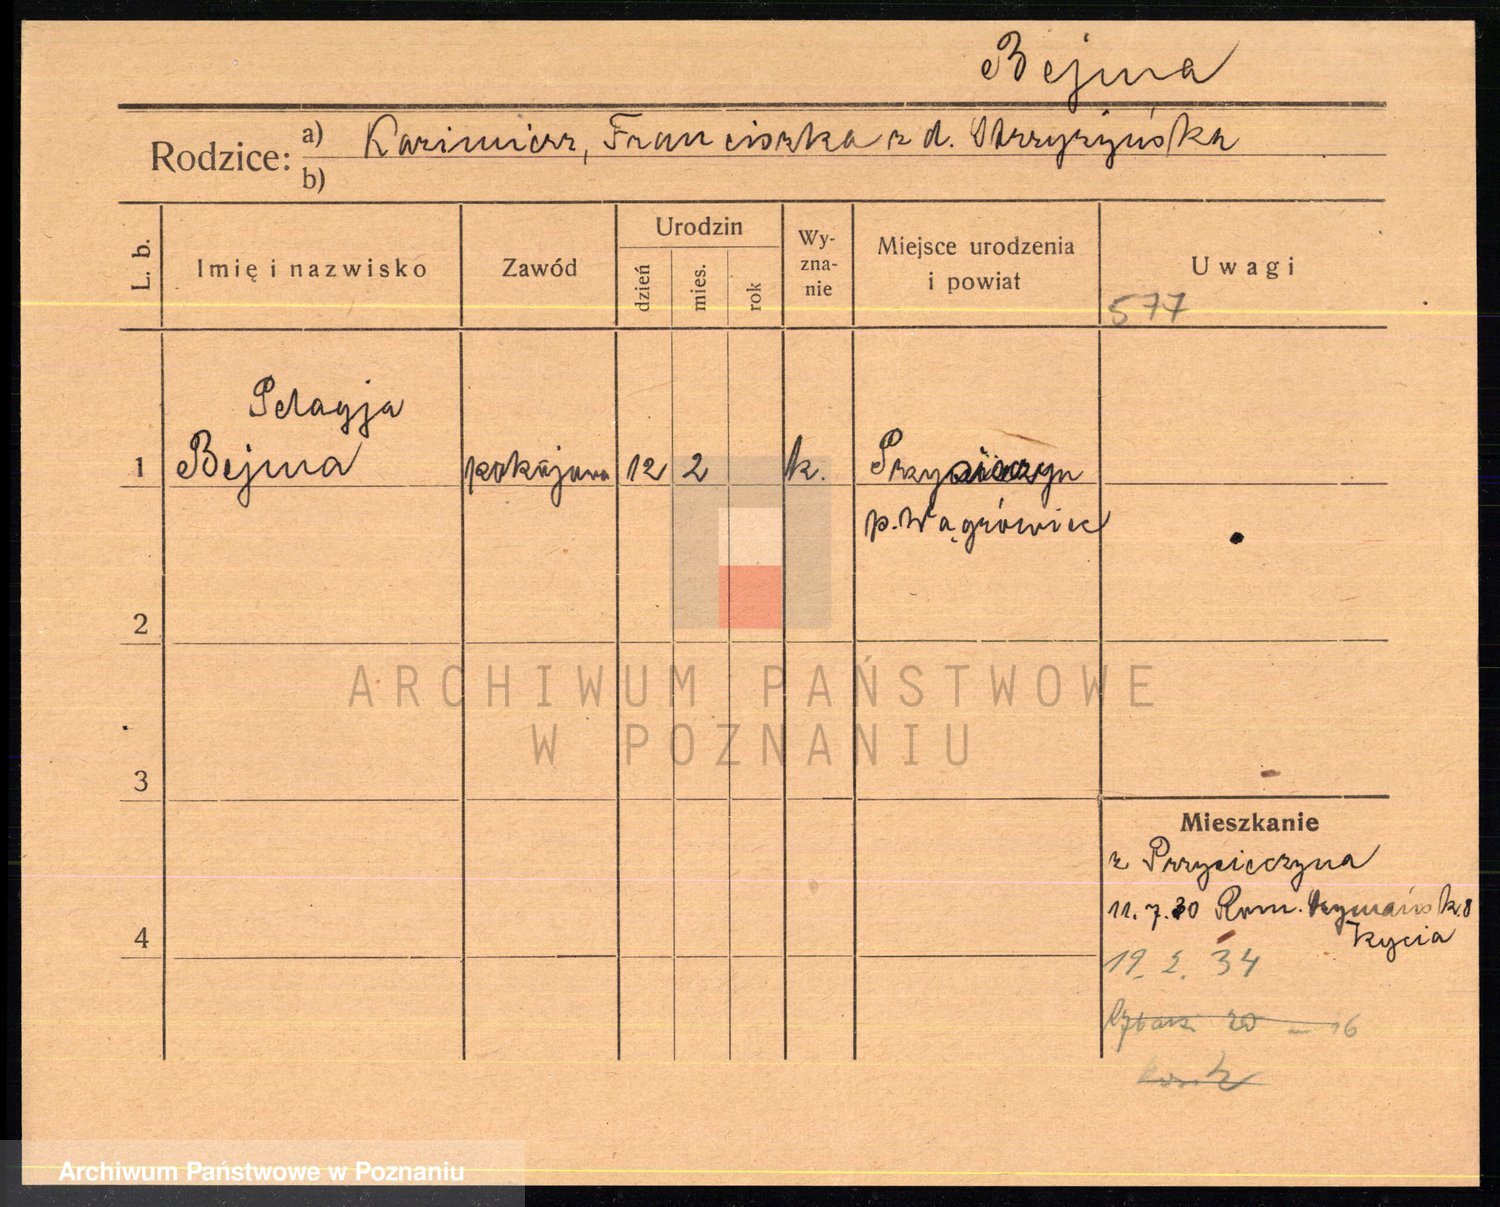 Bejma
Rodzice: a) Kazimierz, Franciszka z d. Strzyżyńska
b)
L. b. Imię i nazwisko Zawód Urodzin dzień mies. rok Wy-zna-nie Miejsce urodzenia i powiat Uwagi
577
Pelagja
1 Bejma pokojowa 12 2 k. Przysieczyn
p. Wągrówiec
2
3
4
Mieszkanie
z Przysieczyna
11.7.30 Rom. Szymańsk. 8
Kycia
19. 2. 34
Rybaki 20 – 16
ARCHIWUM PAŃSTWOWE
W POZNANIU
Archiwum Państwowe w Poznaniu